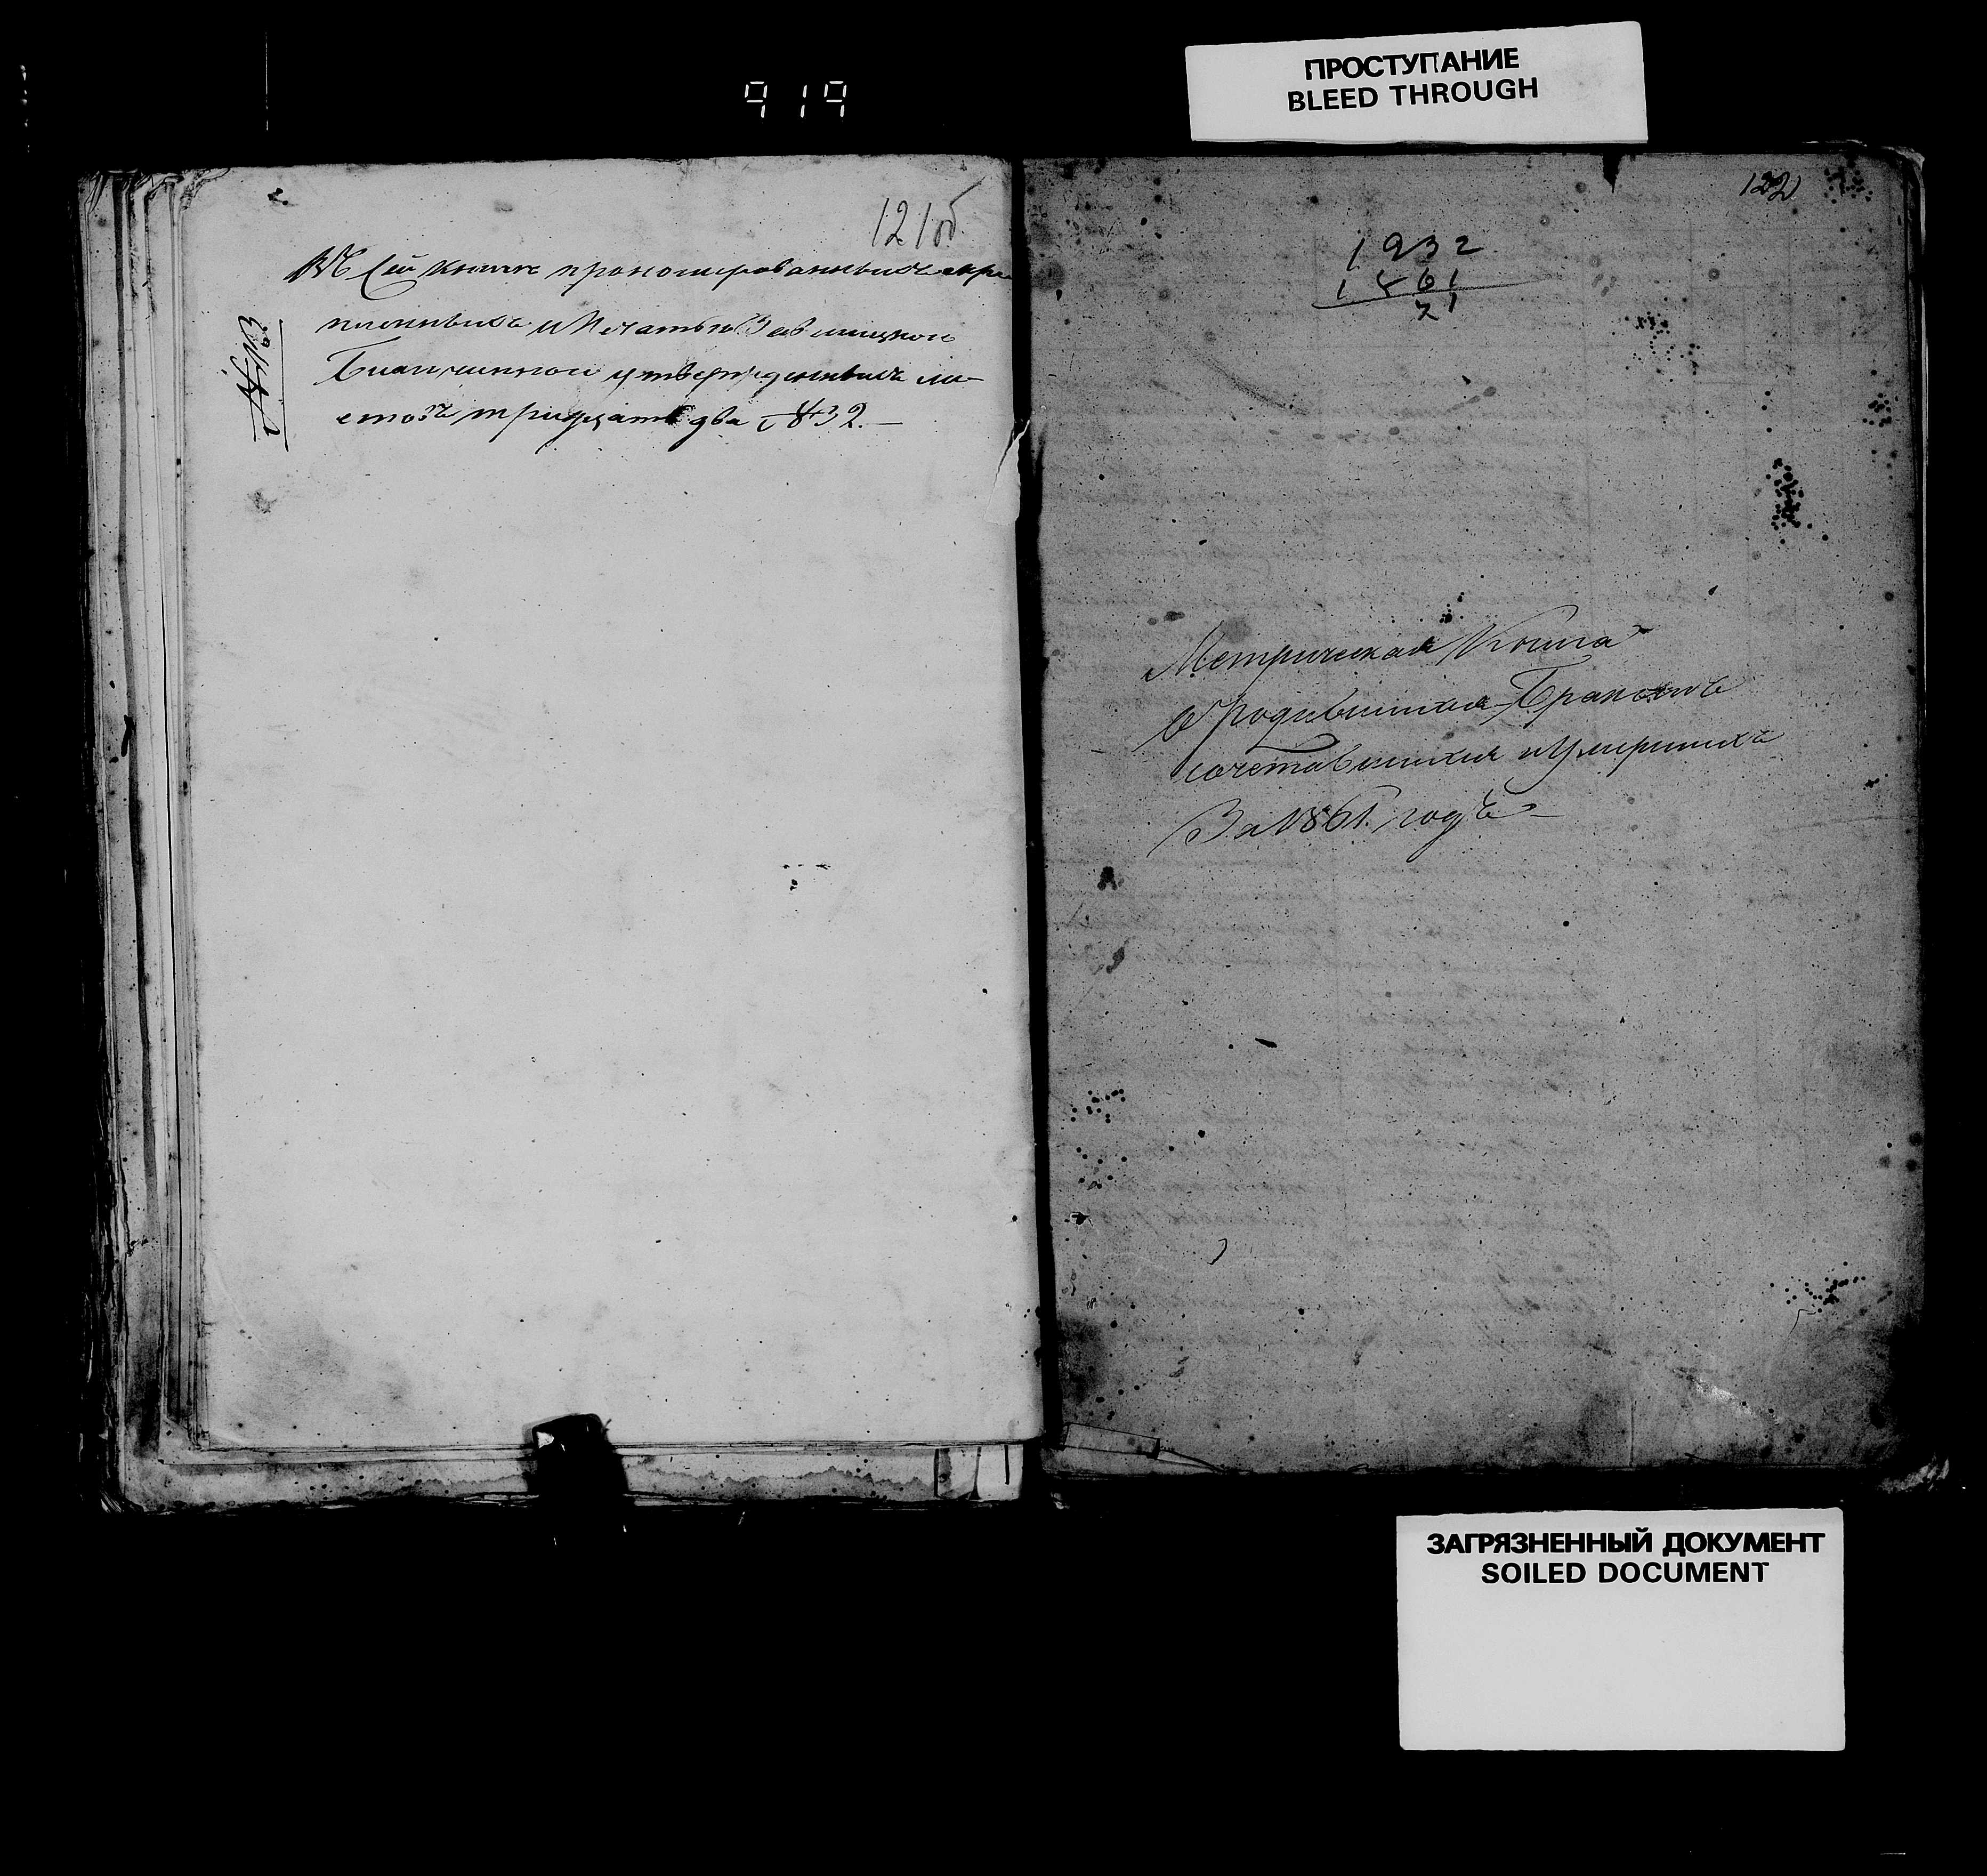 919
ПРОСТУПАНИЕ
BLEED THROUGH
121 об.
Въ сей книге прономерованныхъ скре
пленныхъ и печатью
утвержденныхъ ли-
стовъ тридцать два № 32.
122
1932
1861
71
Метрическая Книга
о родившихся Бракомъ
сочетавшихся и Умершихъ
За 1861. годъ
ЗАГРЯЗНЕННЫЙ ДОКУМЕНТ
SOILED DOCUMENT